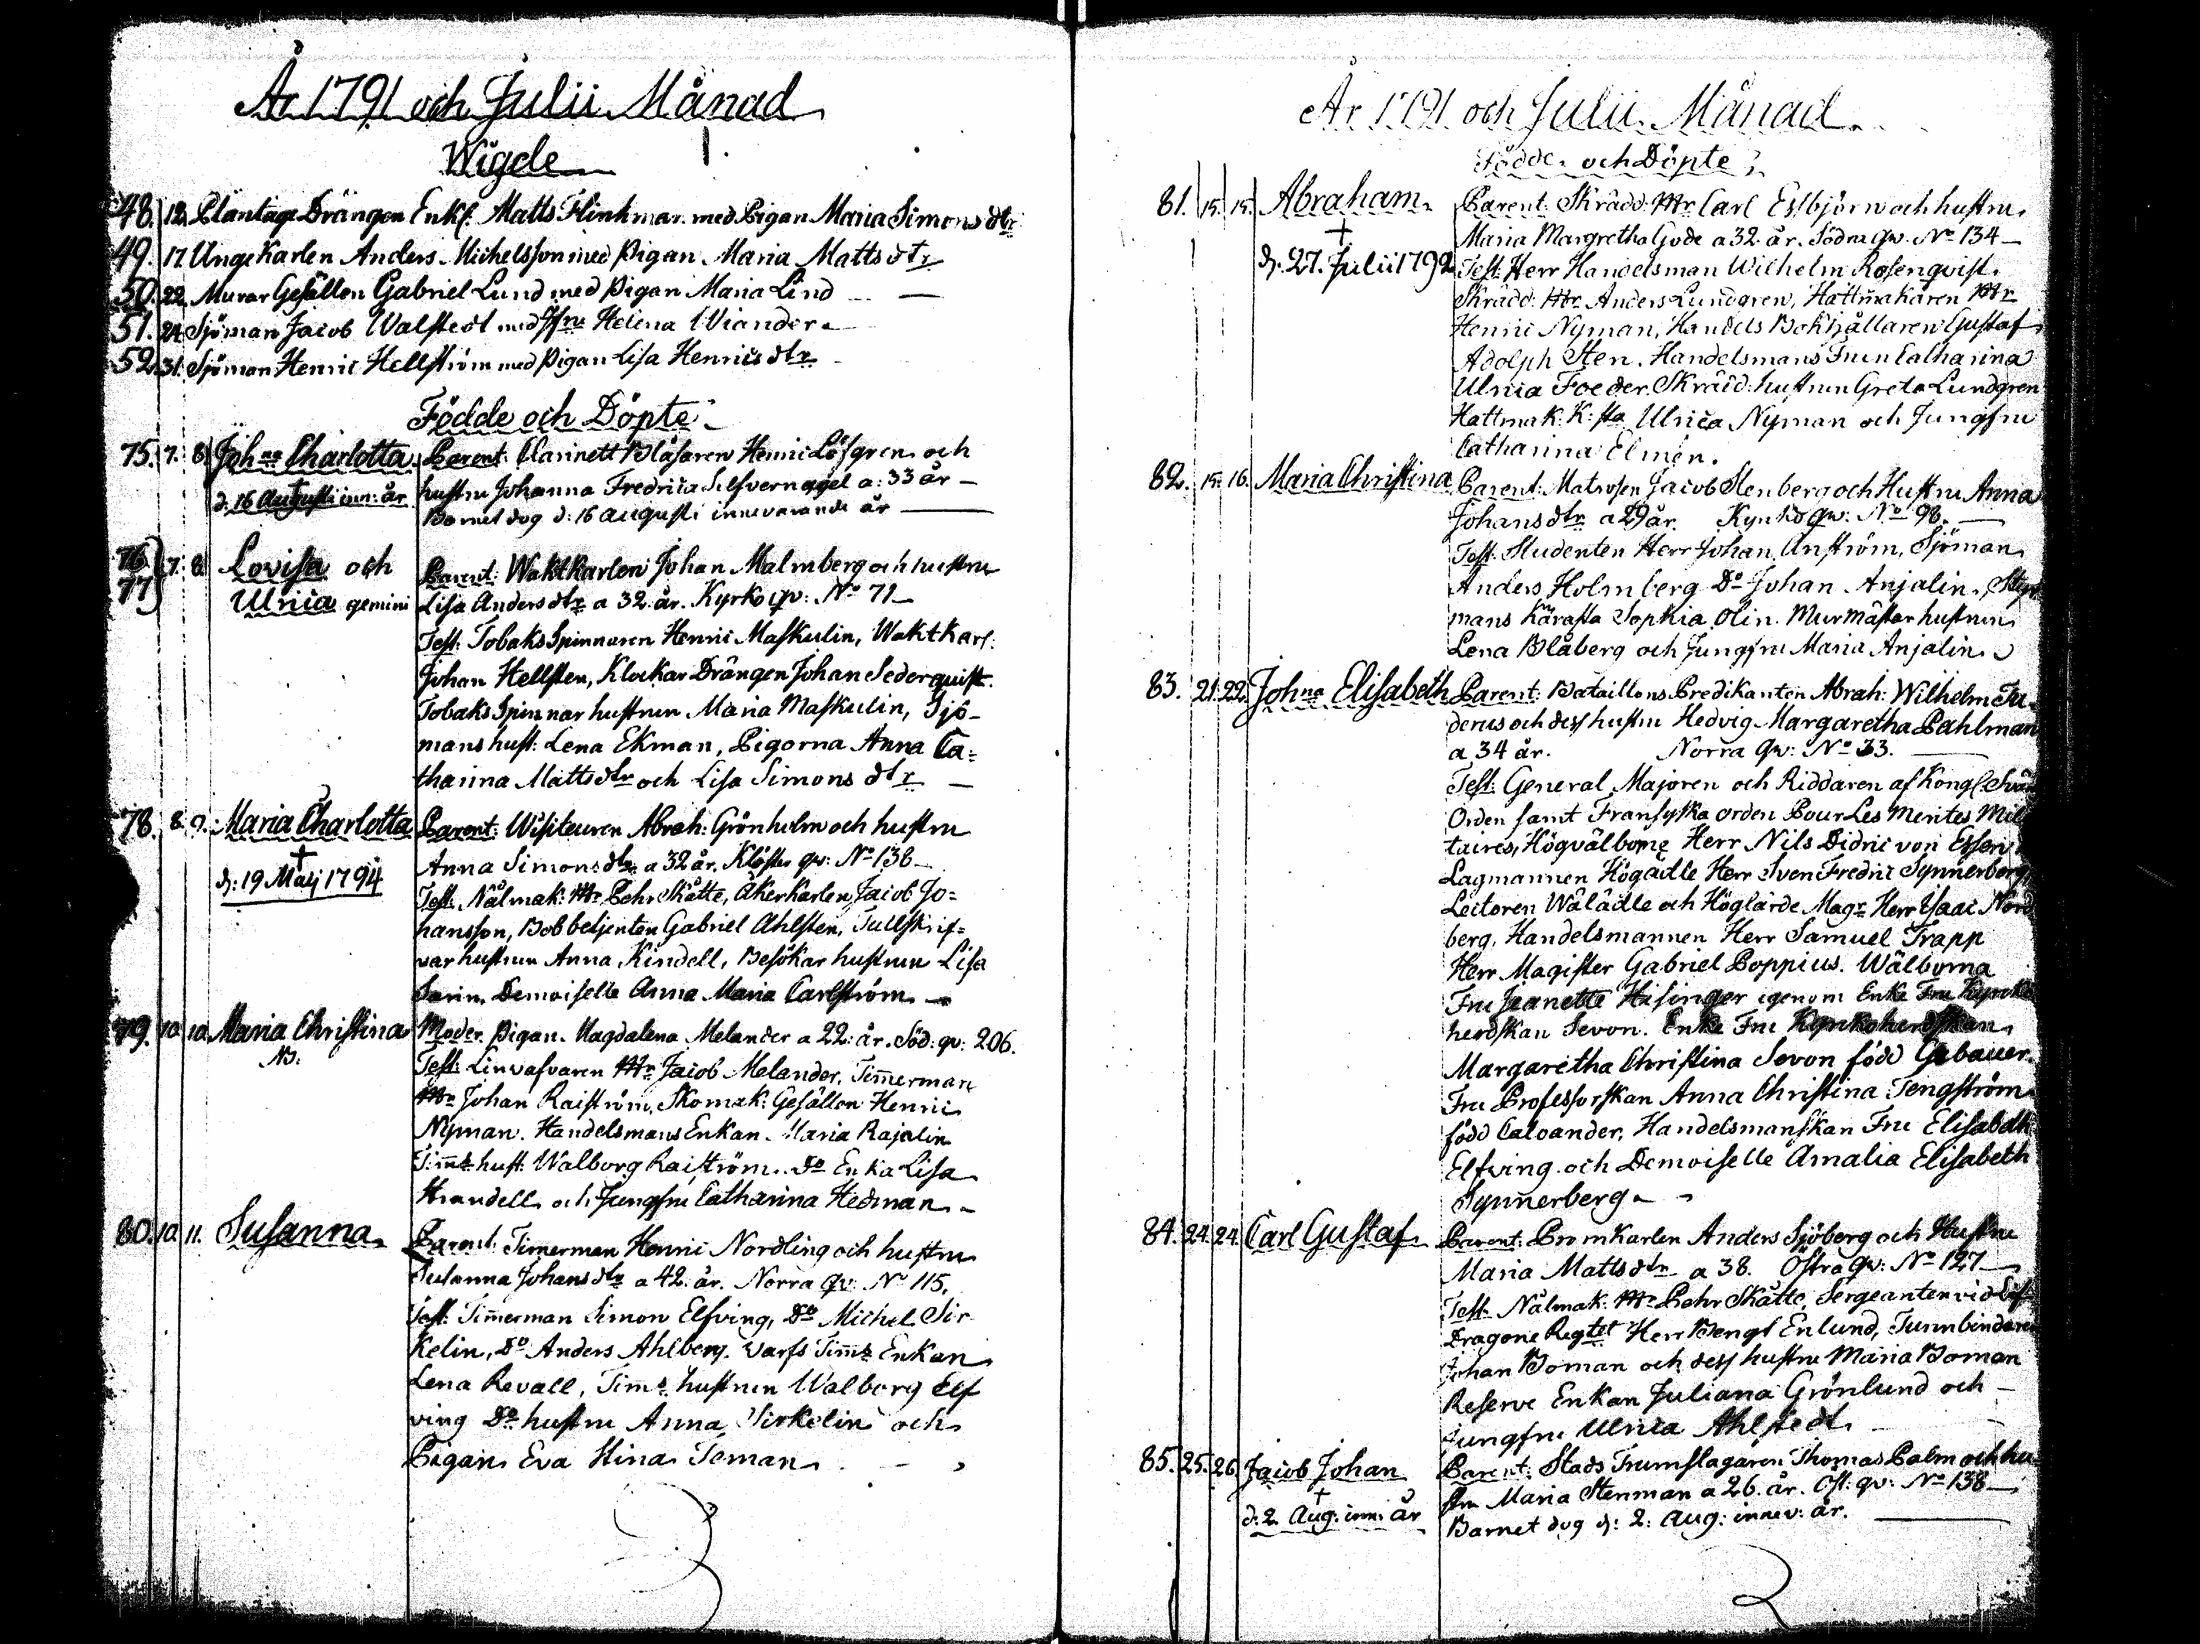 År 1791 och Julii Månad
Wigde
48. 12. Plantage Drängen Enkl. Matts Flinkman med Pigan Maria Simons dtr
49. 17. Unge Karlen Anders Michelsson med Pigan Maria Matts dtr
50. 22. Murar Gesällen Gabriel Lund med Pigan Maria Lind
51. 24. Sjöman Jacob Walstedt med Jfru Helena Wiander
52. 31. Sjöman Henric Hellström med Pigan Lisa Henrics dtr
Födde och Döpte
75. 7. 8. Johna Charlotta Parent: Clarinett Blåsaren Henric Löfgren och
d: 16 Augusti inn: år hustru Johanna Fredrica Silfvernagel a: 33 år
Barnet dog d: 16 augusti innevarande år
76. 77. 7. 8. Lovisa och Parent: Waktkarlen Johan Malmberg och hustru
Ulrica gemini Lisa Anders dtr a 32 år. Kyrko qv: No 71
Test: Tobaks Spinnaren Henric Maskulin, Waktkarl:
Johan Hellsten, Klockar Drängen Johan Sederquist.
Tobaks Spinnar hustrun Maria Maskulin, Sjö-
mans hust: Lena Ekman, Pigorna Anna Ca=
tharina Matts dtr och Lisa Simons dtr
78. 8. 9. Maria Charlotta Parent: Wisiteuren Abrah: Grönholm och hustru
† Anna Simons dtr a 32 år. Kloster qv: No 138
d: 19 Maij 1794
Test: Nålmak: Mr Pehr Skåtte, Åkerkarlen Jacob Jo=
hansson, Bobbetjenten Gabriel Ahlsten, Tullskrif=
var hustrun Anna Kindell, Besökar hustrun Lisa
Sarin, Demoiselle Anna Maria Carlström
79. 10. 10. Maria Christina Moder Pigan Magdalena Melander a 22: år. Söd: qv: 206.
Test: Linvafvaren Mr Jacob Melander, Timerman
Mr Johan Raiström, Skomak: Gesällen Henric
Nyman. Handelsmans Enkan Maria Rajalin
Timms hust: Walborg Raiström. Do Enka Lisa
och Jungfru Catharina Hedman
80. 10. 11. Susanna Parent: Timerman Henric Nordling och hustru
Susanna Johans dtr a 42. år. Norra qv: No 115.
Test: Timerman Simon Elfving, Do Michel Sir
kelin, Do Anders Ahlberg. Varfs Timms Enkan
Lena Revall, Timms hustrun Walborg Elf
ving Do hustru Anna Sirkelin och
Pigan Eva Stina Toman
År 1791 och Julii Månad.
Födde och Döpte
81. 15. 15. Abraham Parent: Skrädd: Mr Carl Essbjörn och hustru
† Maria Margretha Gode a 32. år. Södra qv: No 134
d: 27. Julii 1792 Test: Herr Handelsman Wilhelm Rosenqvist.
Skrädd: Mr Anders Lundgren, Hattmakaren Mr
Henric Nyman, Handels Bokhållaren Gustaf
Adolph Sten. Handelsmans Frun Catharina
Ulrica Foeder. Skrädd: hustrun Greta Lundgren
Hattmak: K:sta Ulrica Nyman och Jungfru
Catharina Elmén.
82. 15. 16. Maria Christina Parent: Matrosen Jacob Stenberg och Hustru Anna
Johans dtr a 29 år. Kyrko qv: No 98.
Test: Studenten Herr Johan Anström, Sjöman
Anders Holmberg Do Johan Anjalin, Styr
mans Kärasta Sophia Olin. Murmästar hustrun
Lena Blåberg och Jungfru Maria Anjalin
83. 21. 22. Johna Elisabeth Parent: Bataillons Predikanten Abrah: Wilhelm Tu
derus och dess hustru Hedvig Margaretha Pahlman
a 34 år. Norra qv: No 33.
Test: General Majoren och Riddaren af Kongl. Svär
Orden samt Fransyska orden Pour Les Merites Mili
taires, Högvälborne Herr Nils Didric von Essen
Lagmannen Högädle Herr Sven Fredric Synnerberg
Lectoren Wälädle och Höglärde Magr Herr Isaac Nord
berg, Handelsmannen Herr Samuel Trapp
Herr Magister Gabriel Poppius. Wälborna
Fru Jeanette Hisinger igenom Enke Fru Kyrko
herdskan Sevon. Enke Fru Kyrkoherdskan
Margaretha Christina Sevon född Gebauer.
Fru Professorskan Anna Christina Tengström
född Caloander, Handelsmanskan Fru Elisabeth
Elfving och Demoiselle Amalia Elisabeth
Synnerberg
84. 24. 24. Carl Gustaf Parent: Promkarlen Anders Sjöberg och Hustru
Maria Matts dtr a 38. Östra qv: No 127
Test: Nålmak: Mr Pehr Skåtte, Sergeanten vid Lif
Dragone Regtet Herr Bengt Enlund, Tunnbindaren
Johan Boman och dess hustru Maria Boman
Reserve Enkan Juliana Grönlund och
Jungfru Ulrica Ahlstedt
85. 25. 26. Jacob Johan Parent: Stads Trumslagaren Thomas Palm och hu
† stru Maria Stenman a 26. år. Öst: qv: No 138
d: 2 Aug: inn: år Barnet dog d: 2: Aug: innev: år.